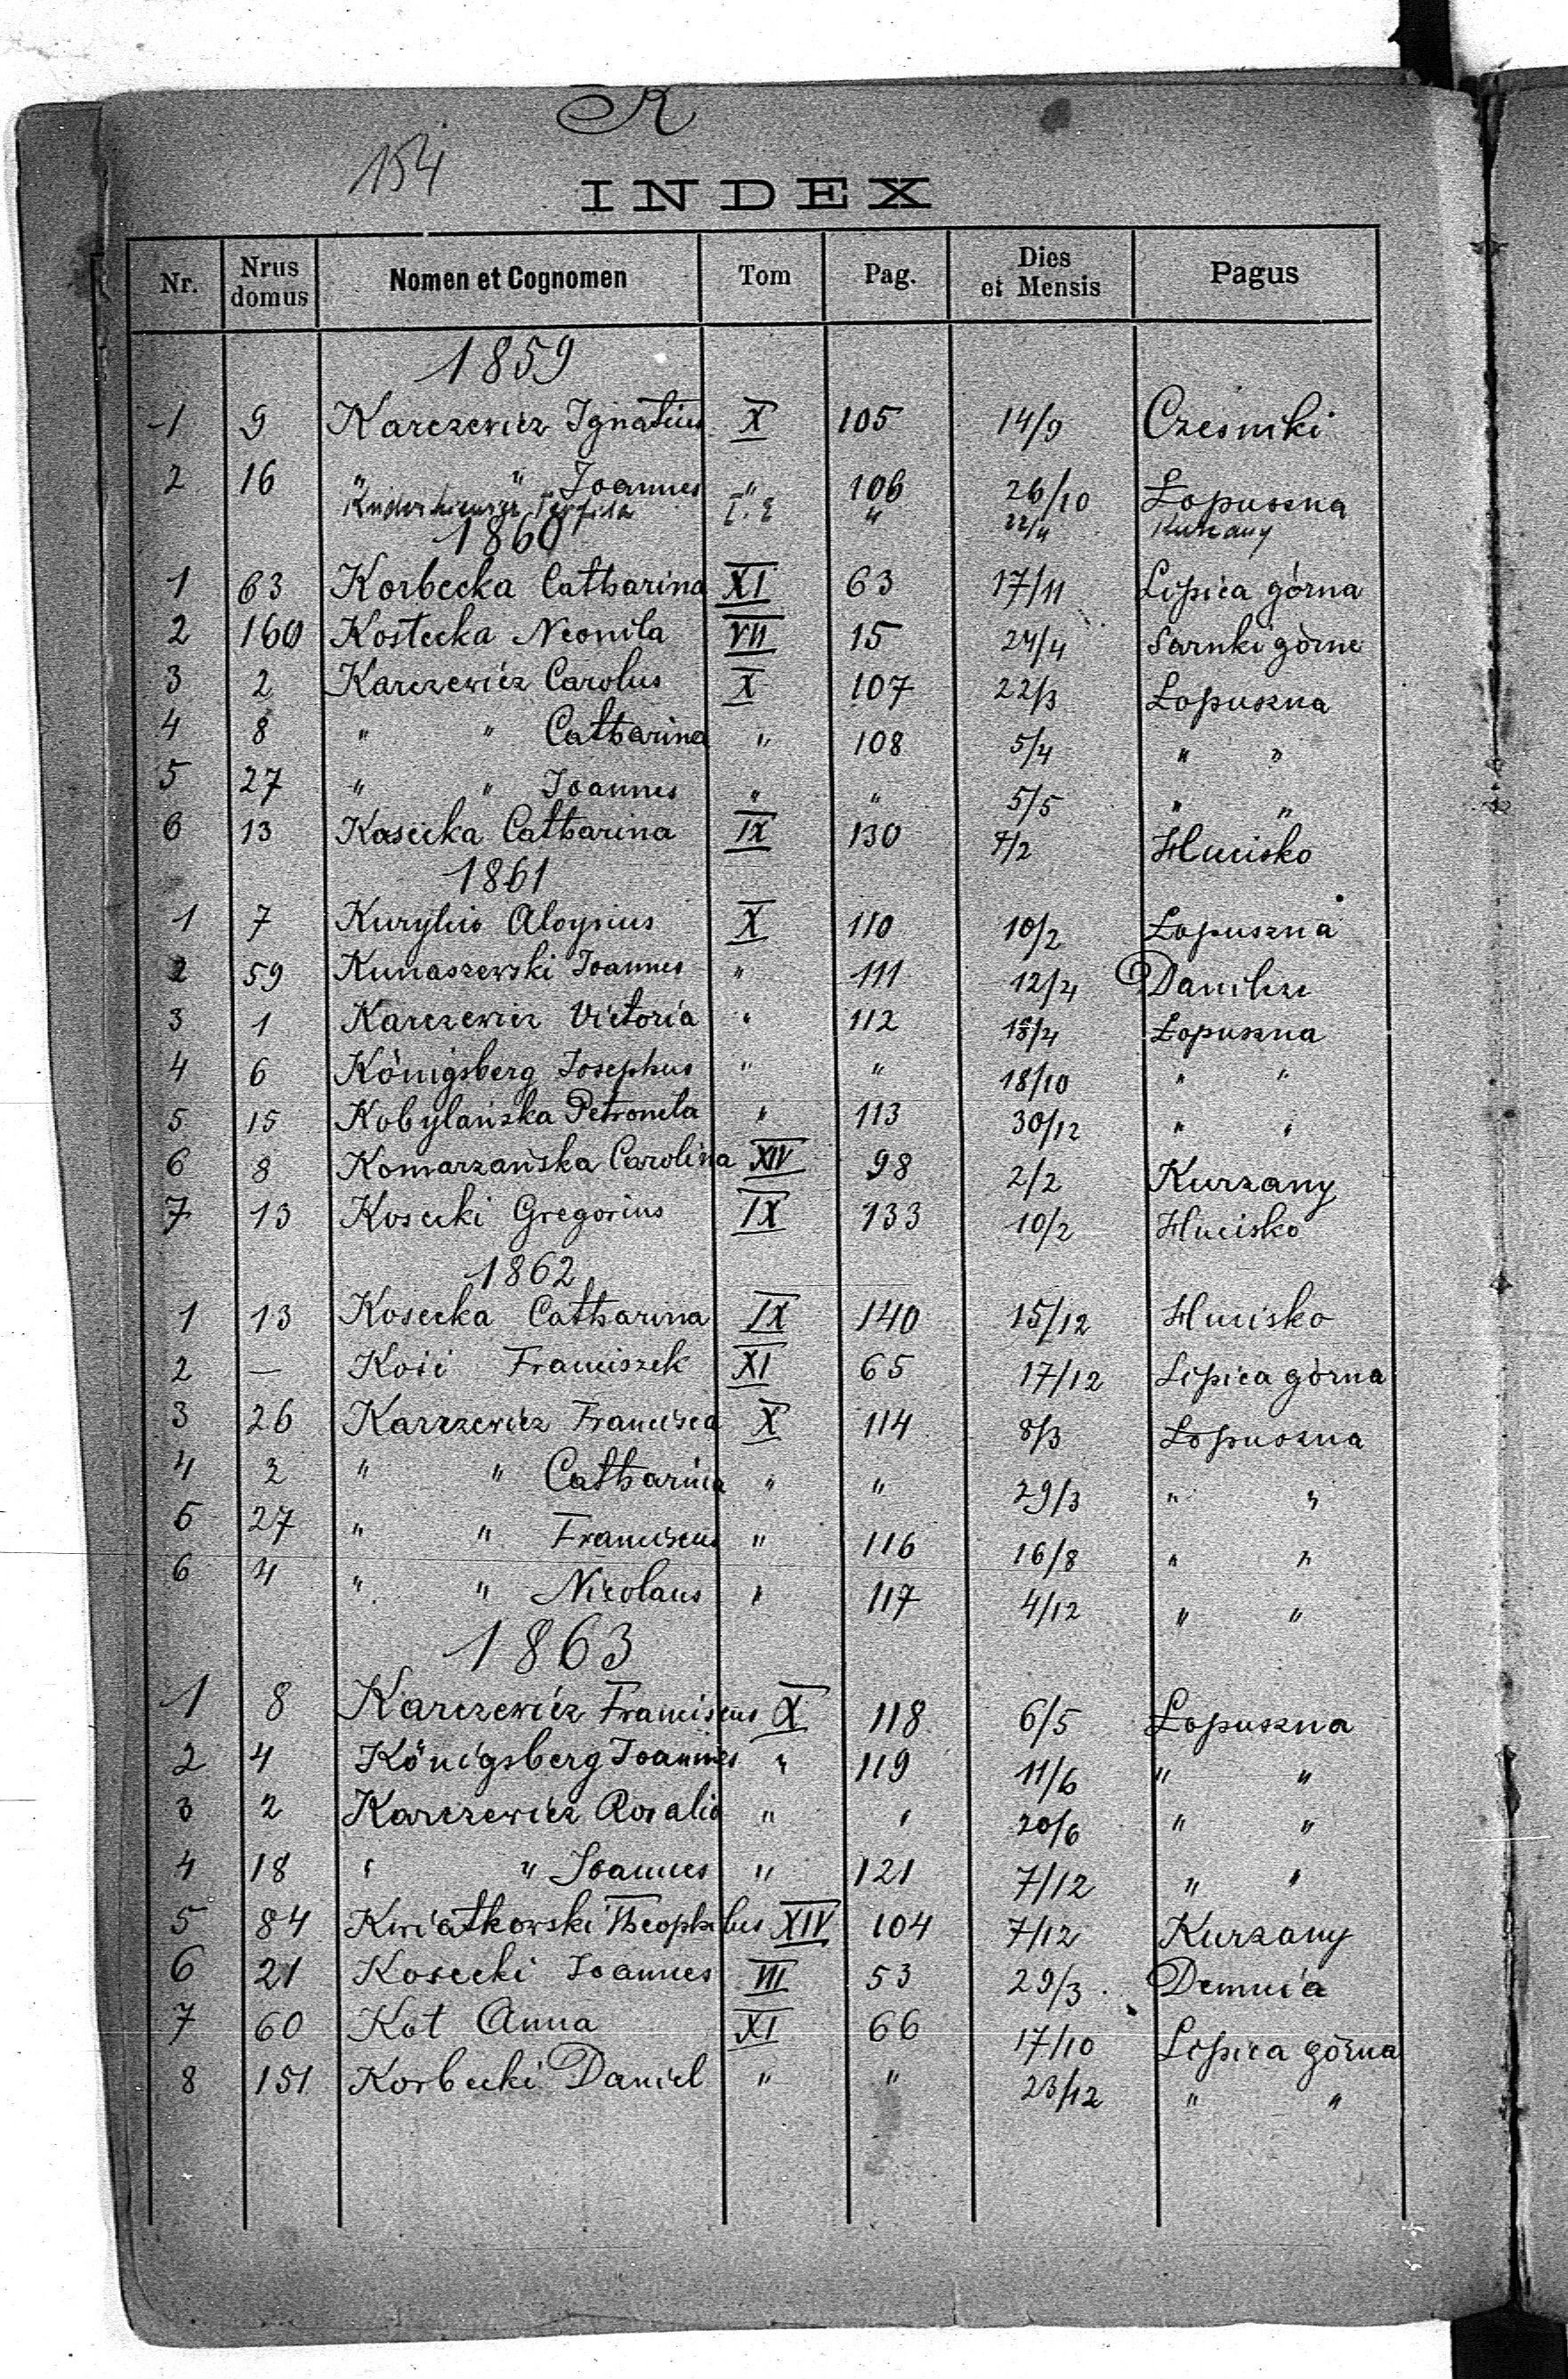 K
154
INDEX
Nr. Nrus domus Nomen et Cognomen Tom Pag. Dies et Mensis Pagus
1859
1 9 Karczewicz Ignatius X 105 14/9 Cześniki
2 16 " " Joannes " 106 26/10 Łopuszna
" 22/11 Kurzany
1860
1 63 Korbecka Catharina XI 63 17/11 Lipica górna
2 160 Kostecka Neonila VII 15 24/4 Sarnki górne
3 2 Karczewicz Carolus X 107 22/3 Łopuszna
4 8 " " Catharina " 108 5/4 " "
5 27 " " Joannes " " 5/5 " "
6 13 Kasecka Catharina IX 130 7/2 Hucisko
1861
1 7 Kuryło Aloysius X 110 10/2 Łopuszna
2 59 Kunaszewski Joannes " 111 12/4 Danilcze
3 1 Karczewicz Victoria " 112 18/4 Łopuszna
4 6 Königsberg Josephus " " 18/10 " "
5 15 Kobylańska Petronela " 113 30/12 " "
6 8 Komarzańska Carolina XIV 98 2/2 Kurzany
7 13 Kosecki Gregorius IX 133 10/2 Hucisko
1862
1 13 Kosecka Catharina IX 140 15/12 Hucisko
2 — Kość Franciszek XI 65 17/12 Lipica górna
3 26 Karczewicz Francisca X 114 8/3 Łopuszna
4 2 " " Catharina " " 29/3 " "
5 27 " " Franciscus " 116 16/8 " "
6 4 " " Nicolaus " 117 4/12 " "
1863
1 8 Karczewicz Franciscus X 118 6/5 Łopuszna
2 4 Königsberg Joannes " 119 11/6 " "
3 2 Karczewicz Rosalia " " 20/6 " "
4 18 " " Joannes " 121 7/12 " "
5 84 Kwiatkowski Theophilus XIV 104 7/12 Kurzany
6 21 Kosecki Joannes VII 53 29/3 Demnia
7 60 Kot Anna XI 66 17/10 Lipica górna
8 151 Korbecki Daniel " " 23/12 " "